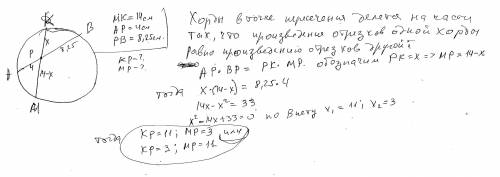 K
B
x
8,25
P
4
14-x
A
M
MK = 14см
AP = 4см
PB = 8,25см.
KP - ?
MP - ?
Хорды в точке пересечения делятся на части
так, что произведения отрезков одной хорды
равно произведению отрезков другой:
AP · BP = PK · MP. обозначим PK = x => MP = 14-x
тогда
x · (14-x) = 8,25 · 4
14x - x² = 33
x² - 14x + 33 = 0 по Виету x₁ = 11; x₂ = 3
тогда
KP = 11; MP = 3 или
KP = 3; MP = 11